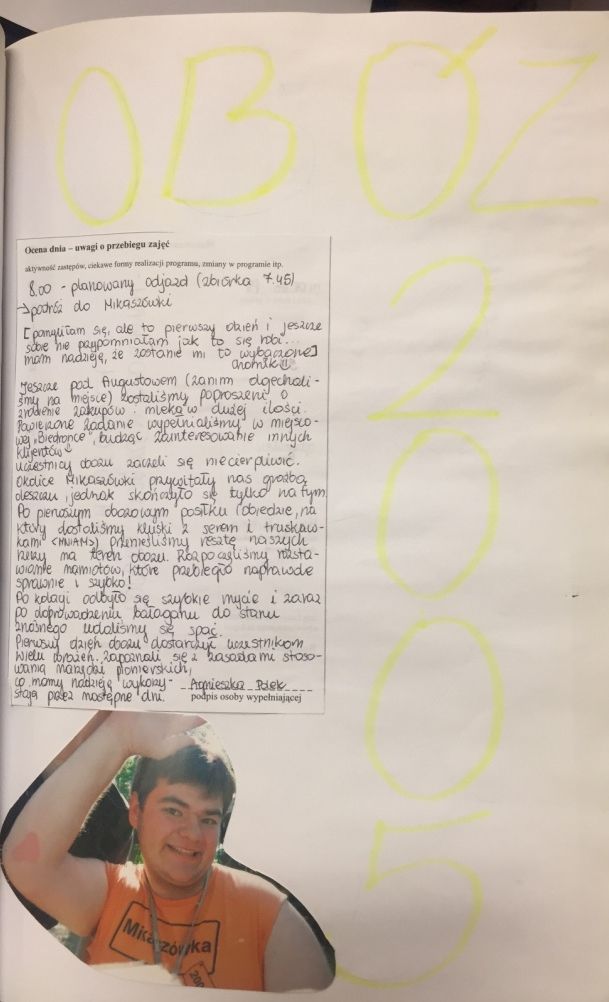 OBÓZ
2005
Ocena dnia – uwagi o przebiegu zajęć
aktywność zastępów, ciekawe formy realizacji programu, zmiany w programie itp.
8.00 - planowany odjazd (zbiórka 7.45)
→ podróż do Mikaszówki
[pomyliłam się, ale to pierwszy dzień i jeszcze
sobie nie przypomniałam jak to się robi...
mam nadzieję, że zostanie mi to wybaczone]
chomik
Jeszcze pod Augustowem (zanim dojechali-
śmy na miejsce) zostaliśmy poproszeni o
zrobienie zakupów - mleka w dużej ilości.
Powierzone zadanie wypełnialiśmy w miejsco-
wej „Biedronce", budząc zainteresowanie innych
klientów
Uczestnicy obozu zaczęli się niecierpliwić.
Okolice Mikaszówki przywitały nas groźbą
deszczu, jednak skończyło się tylko na tym.
Po pierwszym obozowym posiłku (obiedzie, na
który dostaliśmy kluski z serem i truskaw-
kami <MNIAM>) przenieśliśmy resztę naszych
rzeczy na teren obozu. Rozpoczęliśmy rozsta-
wianie namiotów, które przebiegło naprawdę
sprawnie i szybko!
Po kolacji odbyło się szybkie mycie i zaraz
po doprowadzeniu bałaganu do stanu
znośnego udaliśmy się spać.
Pierwszy dzień obozu dostarczył uczestnikom
wielu wrażeń. Zapoznali się z zasadami stoso-
wania narzędzi pionierskich,
co mamy nadzieję wykorzy-
stają przez następne dni.
Agnieszka
podpis osoby wypełniającej
Mikaszówka
200